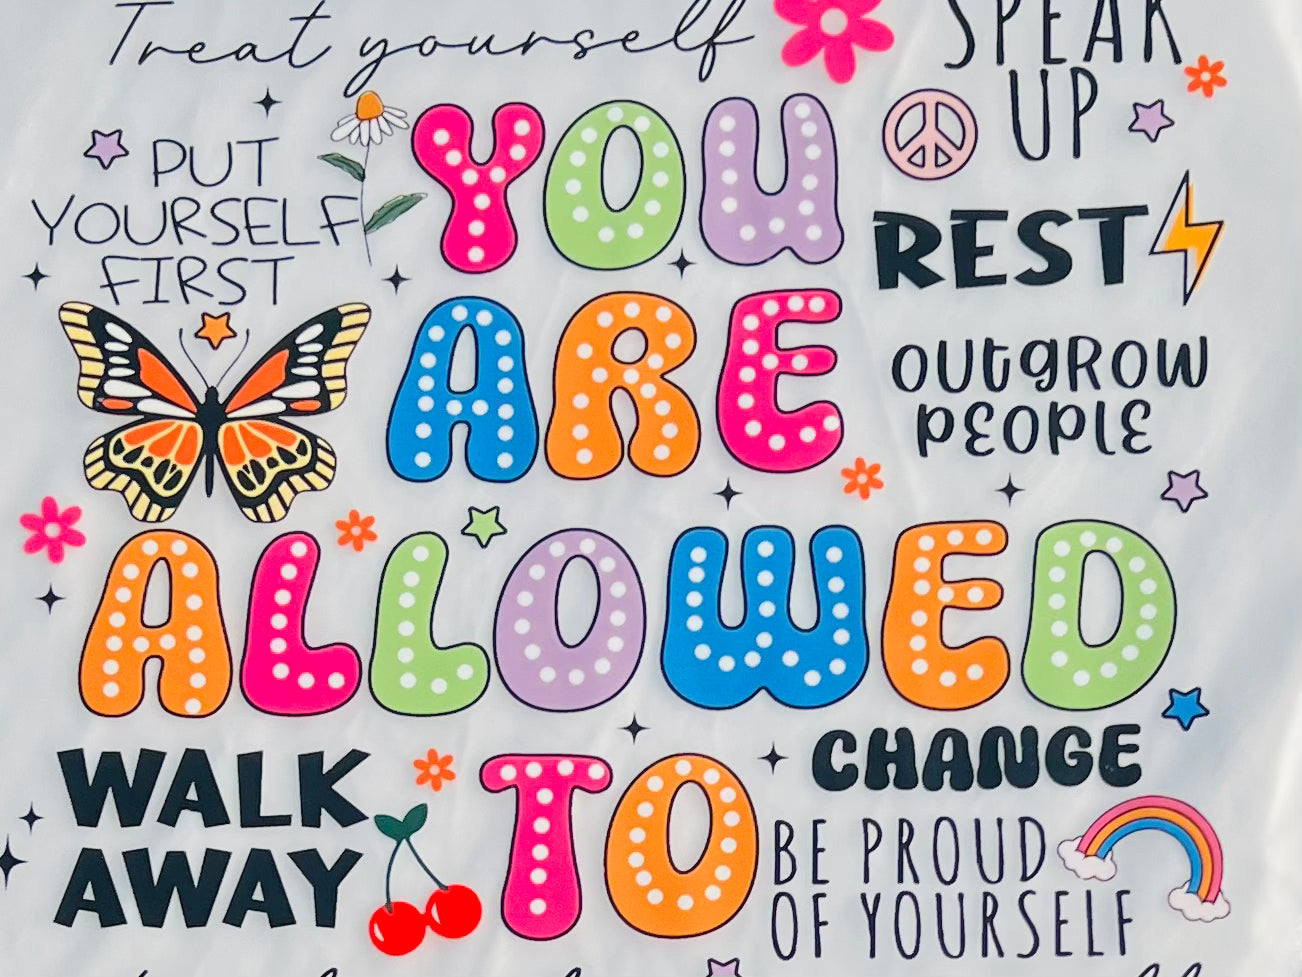 Treat yourself
SPEAK
UP
PUT
YOURSELF
FIRST
YOU
REST
ARE
OUtgROW
PEOPLE
ALLOWED
WALK
AWAY
TO
CHANGE
BE PROUD
OF YOURSELF